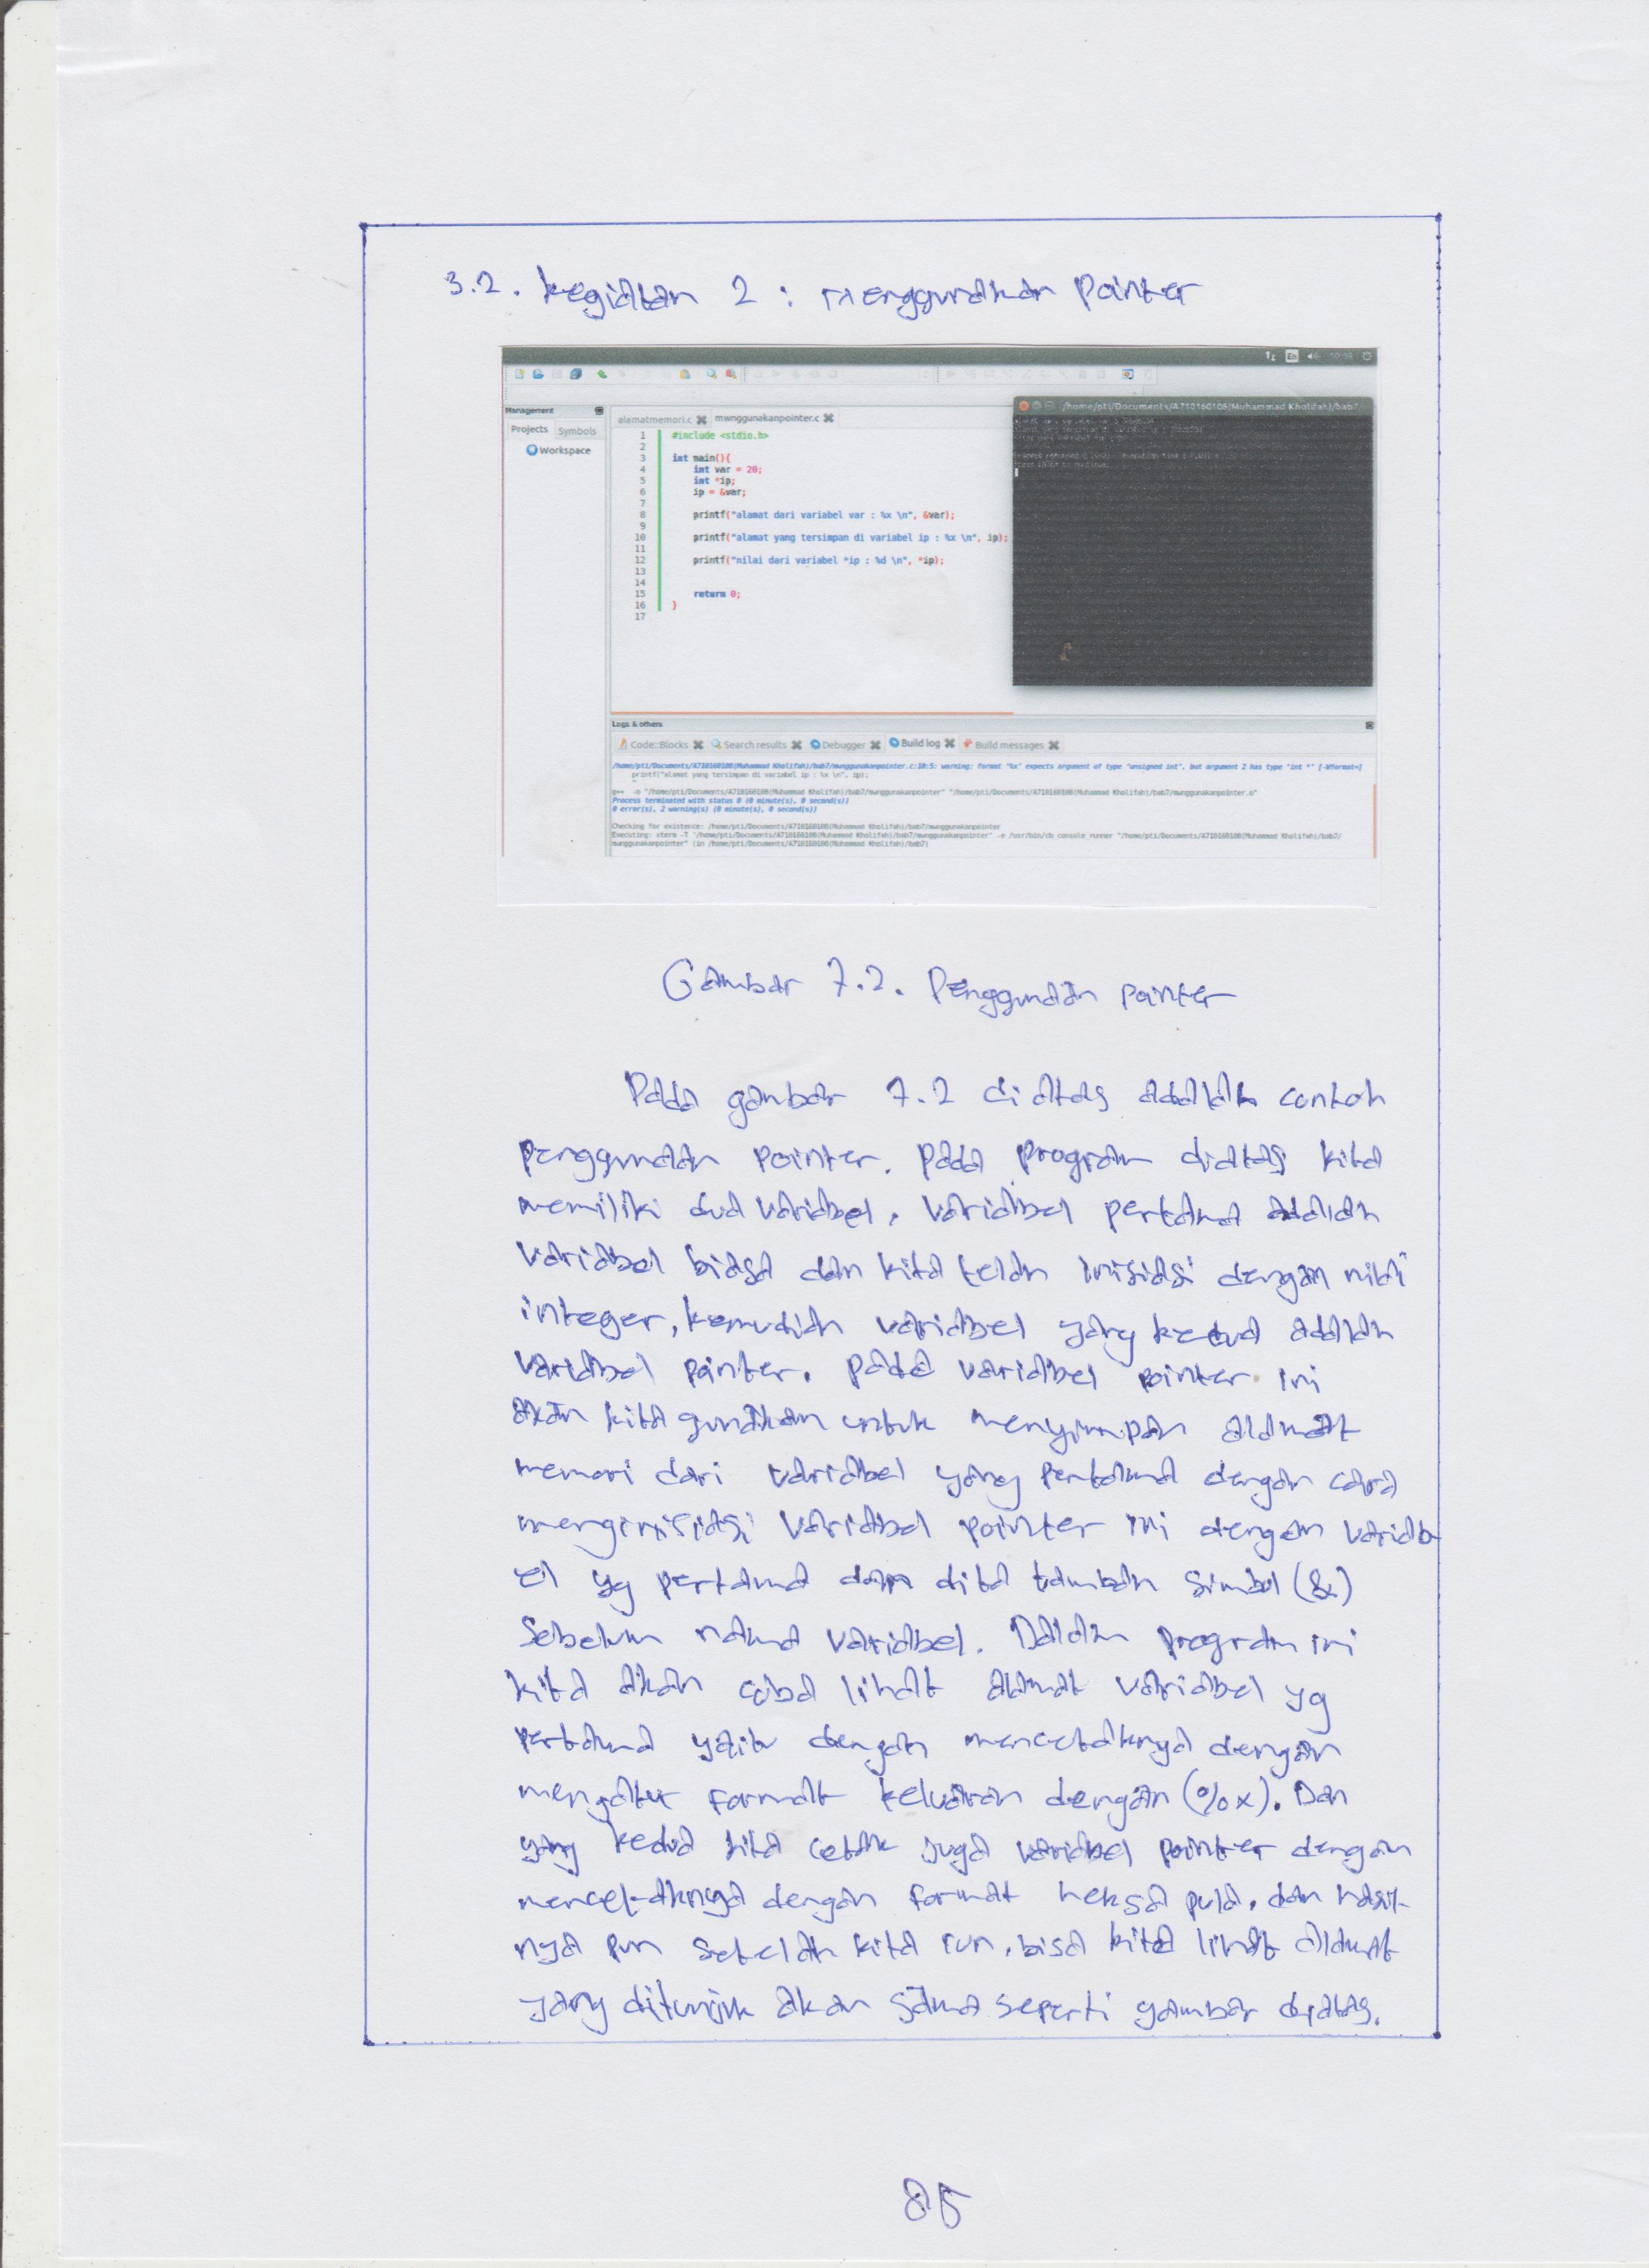 3.2. kegiatan 2 : Menggunakan Pointer
En
Management
Projects Symbols
Workspace
alamatmemori.c mwnggunakanpointer.c
/home/pti/Documents/A710160106(Muhammad Kholifah)/bab7
1 #include <stdio.h>
2
3 int main(){
4 int var = 20;
5 int *ip;
6 ip = &var;
7
8 printf("alamat dari variabel var : %x \n", &var);
9
10 printf("alamat yang tersimpan di variabel ip : %x \n", ip);
11
12 printf("nilai dari variabel *ip : %d \n", *ip);
13
14
15 return 0;
16 }
17
Logs & others
Code::Blocks Search results Debugger Build log Build messages
/home/pti/Documents/A710160106(Muhammad Kholifah)/bab7/mwnggunakanpointer.c:10:5: warning: format '%x' expects argument of type 'unsigned int', but argument 2 has type 'int *' [-Wformat=]
printf("alamat yang tersimpan di variabel ip : %x \n", ip);
g++ -o "/home/pti/Documents/A710160106(Muhammad Kholifah)/bab7/mwnggunakanpointer" "/home/pti/Documents/A710160106(Muhammad Kholifah)/bab7/mwnggunakanpointer.o"
Process terminated with status 0 (0 minute(s), 0 second(s))
0 error(s), 2 warning(s) (0 minute(s), 0 second(s))
Checking for existence: /home/pti/Documents/A710160106(Muhammad Kholifah)/bab7/mwnggunakanpointer
Executing: xterm -T '/home/pti/Documents/A710160106(Muhammad Kholifah)/bab7/mwnggunakanpointer' -e /usr/bin/cb_console_runner "/home/pti/Documents/A710160106(Muhammad Kholifah)/bab7/
mwnggunakanpointer" (in /home/pti/Documents/A710160106(Muhammad Kholifah)/bab7)
Gambar 7.2. Penggunaan pointer
Pada gambar 7.2 di atas adalah contoh
penggunaan pointer. pada program diatas kita
memiliki dua variabel. Variabel pertama adalah
variabel biasa dan kita telah inisiasi dengan nilai
integer, kemudian variabel yang kedua adalah
variabel pointer. pada variabel pointer ini
akan kita gunakan untuk menyimpan alamat
memori dari variabel yang pertama dengan cara
menginisiasi variabel pointer ini dengan variab-
el yg pertama dan dita tambah simbol (&)
sebelum nama variabel. Dalam program ini
kita akan coba lihat alamat variabel yg
pertama yaitu dengan mencetaknya dengan
mengatur format keluaran dengan (%x). Dan
yang kedua kita cetak juga variabel pointer dengan
mencetaknya dengan format heksa pula. dan hasil-
nya pun setelah kita run, bisa kita lihat alamat
yang ditunjuk akan sama seperti gambar diatas.
85